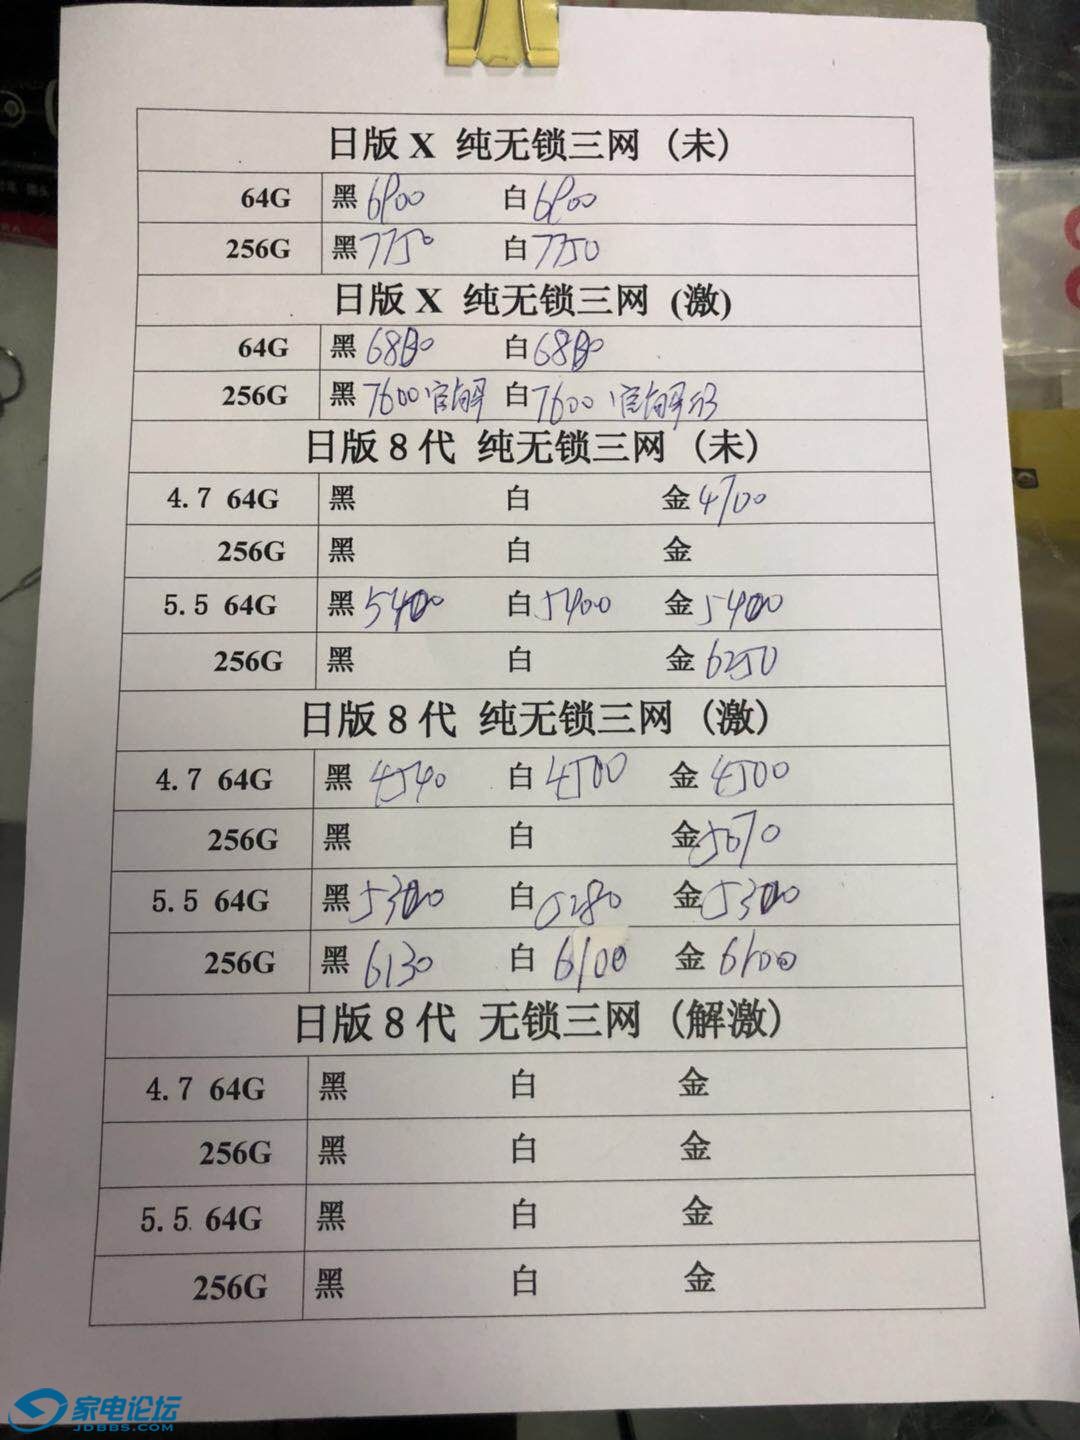 日版 X 纯无锁三网 (未)
64G 黑 6900 白 6900
256G 黑 7750 白 7750
日版 X 纯无锁三网 (激)
64G 黑 68 白 68
256G 黑 7600 官 白 7600 官
日版 8 代 纯无锁三网 (未)
4.7 64G 黑 白 金 4700
256G 黑 白 金
5.5 64G 黑 5400 白 5400 金 5400
256G 黑 白 金 6250
日版 8 代 纯无锁三网 (激)
4.7 64G 黑 4540 白 4500 金 4500
256G 黑 白 金 5670
5.5 64G 黑 5300 白 5280 金 5300
256G 黑 6130 白 6100 金 6100
日版 8 代 无锁三网 (解激)
4.7 64G 黑 白 金
256G 黑 白 金
5.5 64G 黑 白 金
256G 黑 白 金
家电论坛
JDBBS.COM